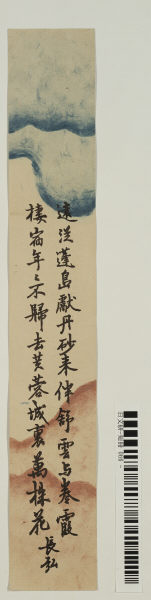 遠從蓬島獻丹砂来伴舒雲与卷霞
棲宿年〻不歸去芙蓉城裏萬株花
長弘